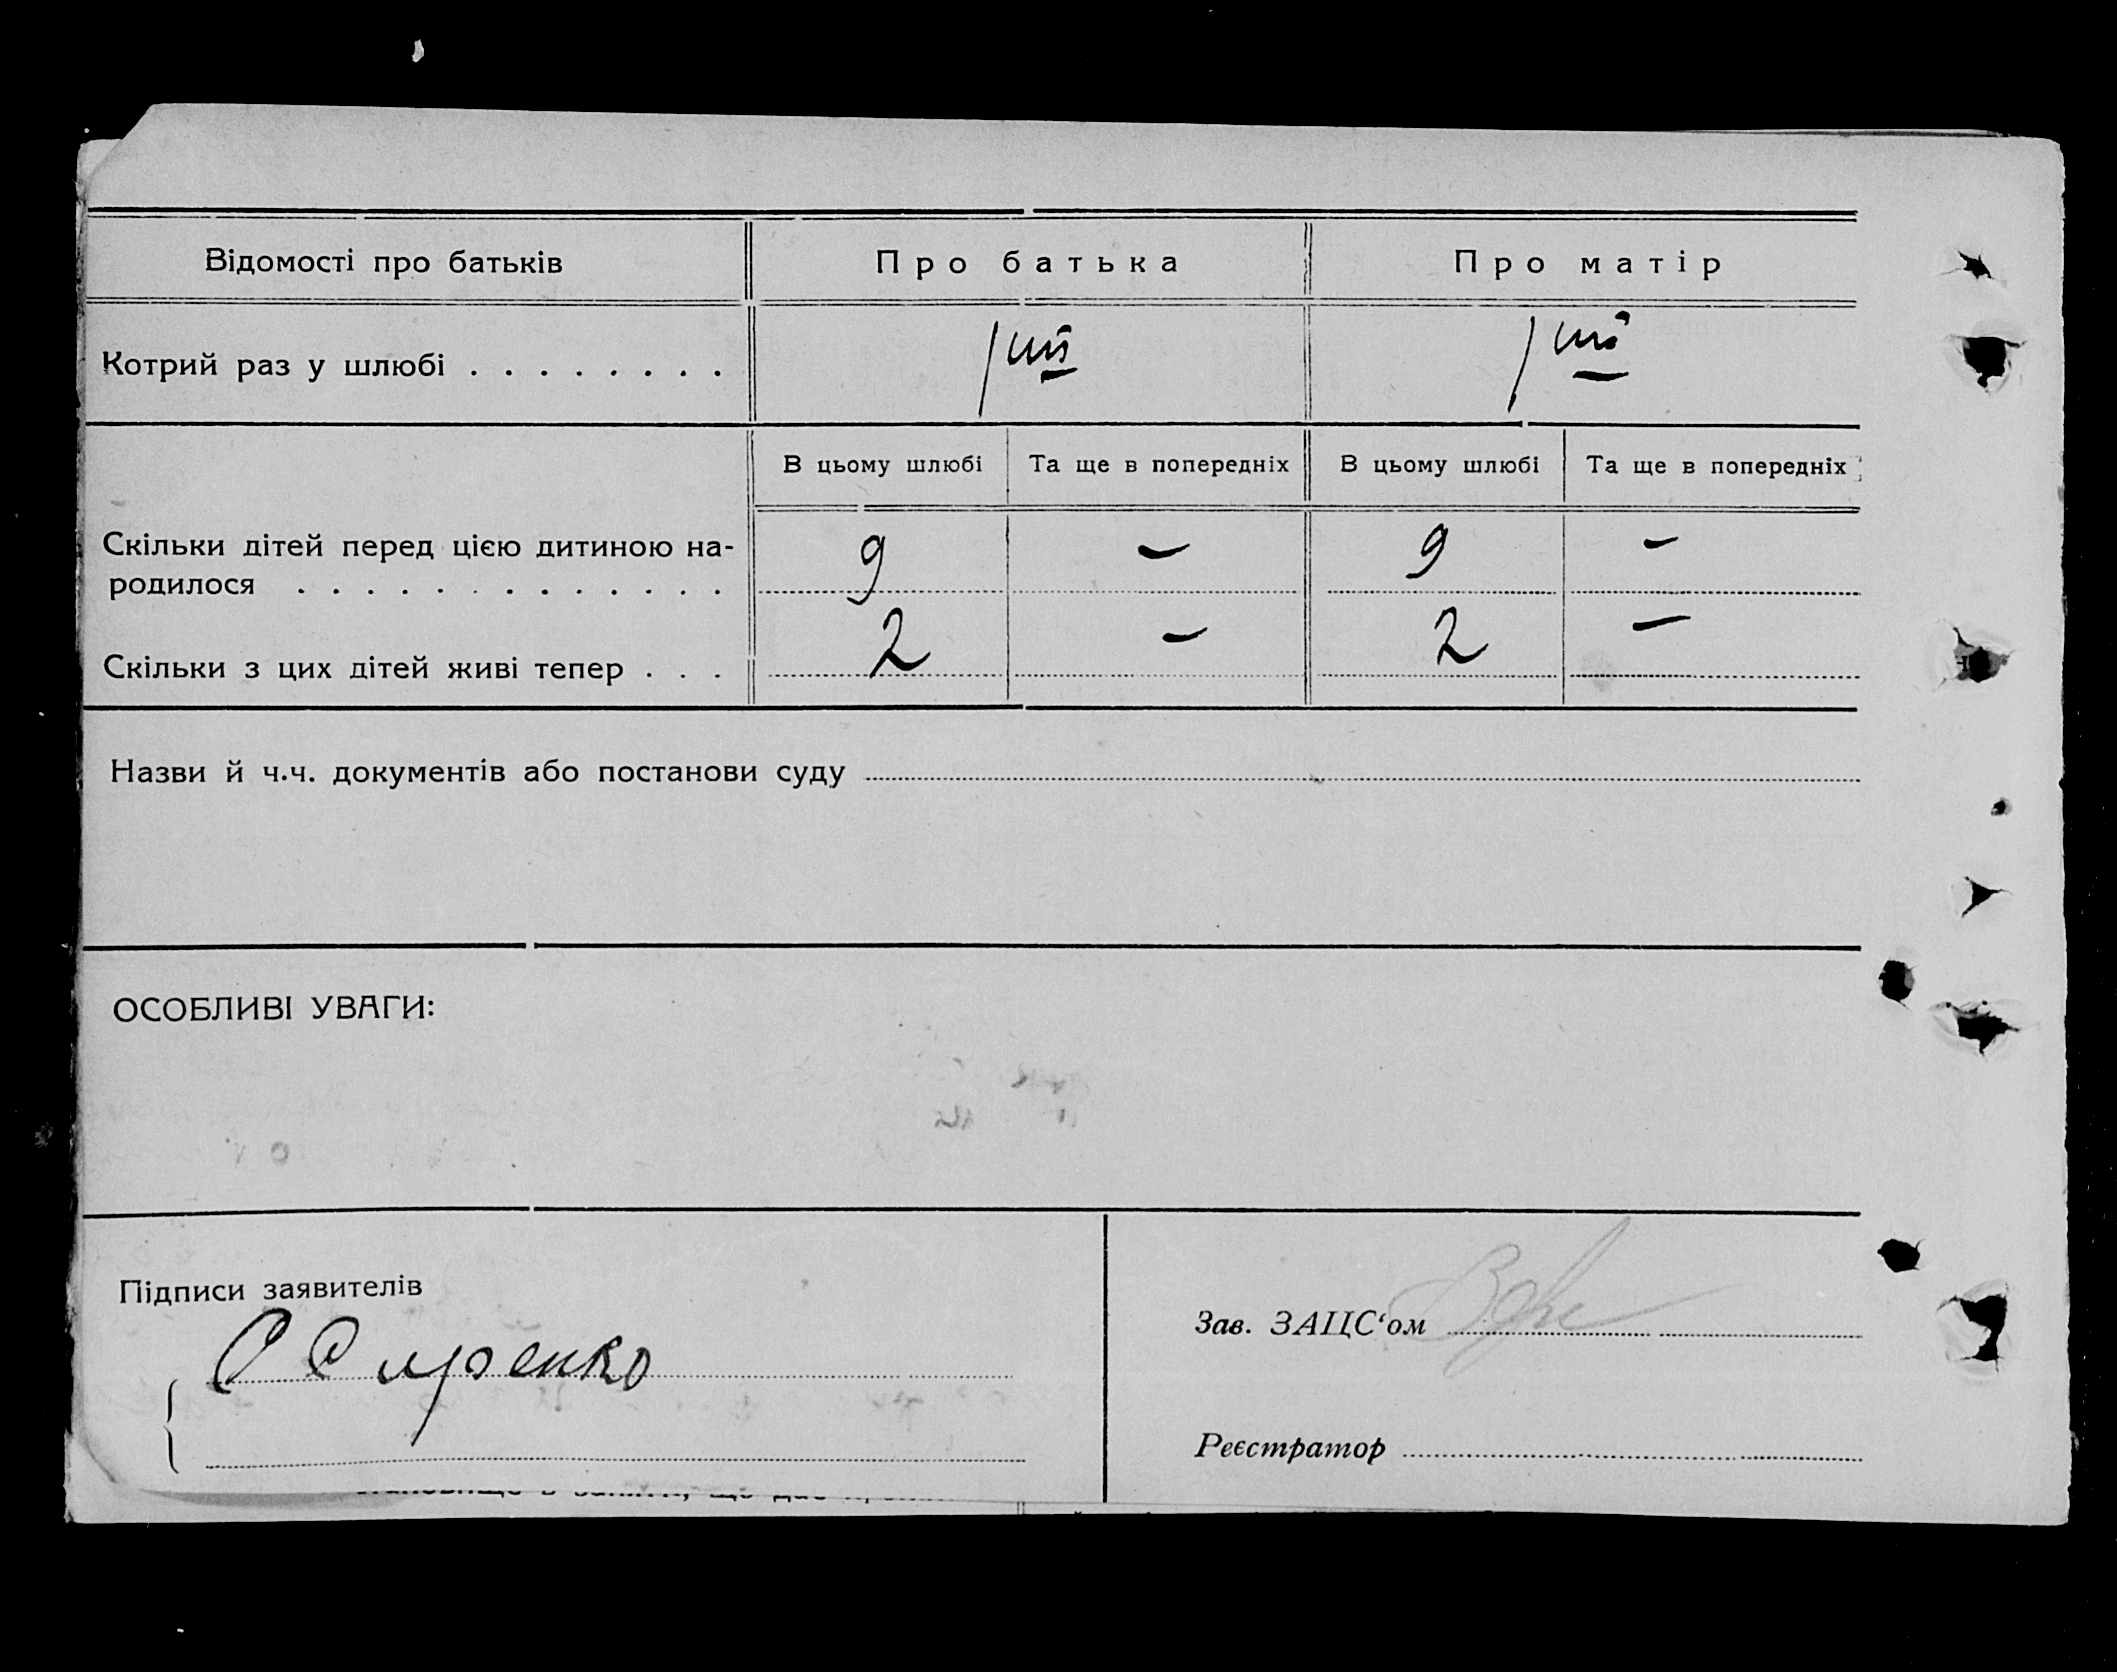 Відомості про батьків Про батька Про матір
Котрий раз у шлюбі . . . . . . . . 1ший 1ший
В цьому шлюбі Та ще в попередніх В цьому шлюбі Та ще в попередніх
Скільки дітей перед цією дитиною на-
родилося . . . . . . . . . . . . . 9 — 9 —
Скільки з цих дітей живі тепер . . . 2 — 2 —
Назви й ч.ч. документів або постанови суду
ОСОБЛИВІ УВАГИ:
Підписи заявителів
Зав. ЗАЦС‘ом
Реєстратор